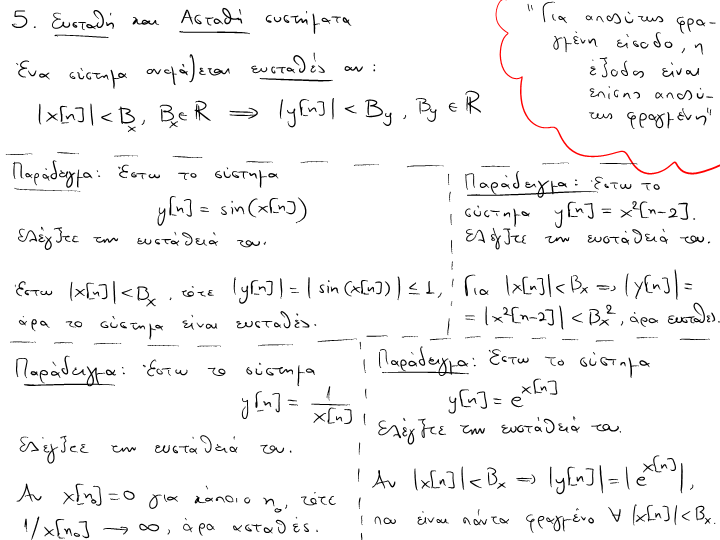 5. Ευσταθή και Ασταθή συστήματα
Ένα σύστημα ονομάζεται ευσταθές αν:
|x[n]| < Bx, Bx ∈ ℝ ⟹ |y[n]| < By, By ∈ ℝ
"Για απολύτως φρα-
γμένη είσοδο, η
έξοδος είναι
επίσης απολύ-
τως φραγμένη"
Παράδειγμα: Έστω το σύστημα
y[n] = sin(x[n])
Ελέγξτε την ευστάθειά του.
Έστω |x[n]| < Bx, τότε |y[n]| = |sin(x[n])| ≤ 1,
άρα το σύστημα είναι ευσταθές.
Παράδειγμα: Έστω το
σύστημα y[n] = x²[n-2].
Ελέγξτε την ευστάθειά του.
Για |x[n]| < Bx ⟹ |y[n]| =
= |x²[n-2]| < Bx², άρα ευσταθές.
Παράδειγμα: Έστω το σύστημα
y[n] = 1/x[n]
Ελέγξτε την ευστάθειά του.
Αν x[n₀] = 0 για κάποιο n₀, τότε
1/x[n₀] → ∞, άρα ασταθές.
Παράδειγμα: Έστω το σύστημα
y[n] = e^x[n]
Ελέγξτε την ευστάθειά του.
Αν |x[n]| < Bx ⟹ |y[n]| = |e^x[n]|,
που είναι πάντα φραγμένο ∀ |x[n]| < Bx.